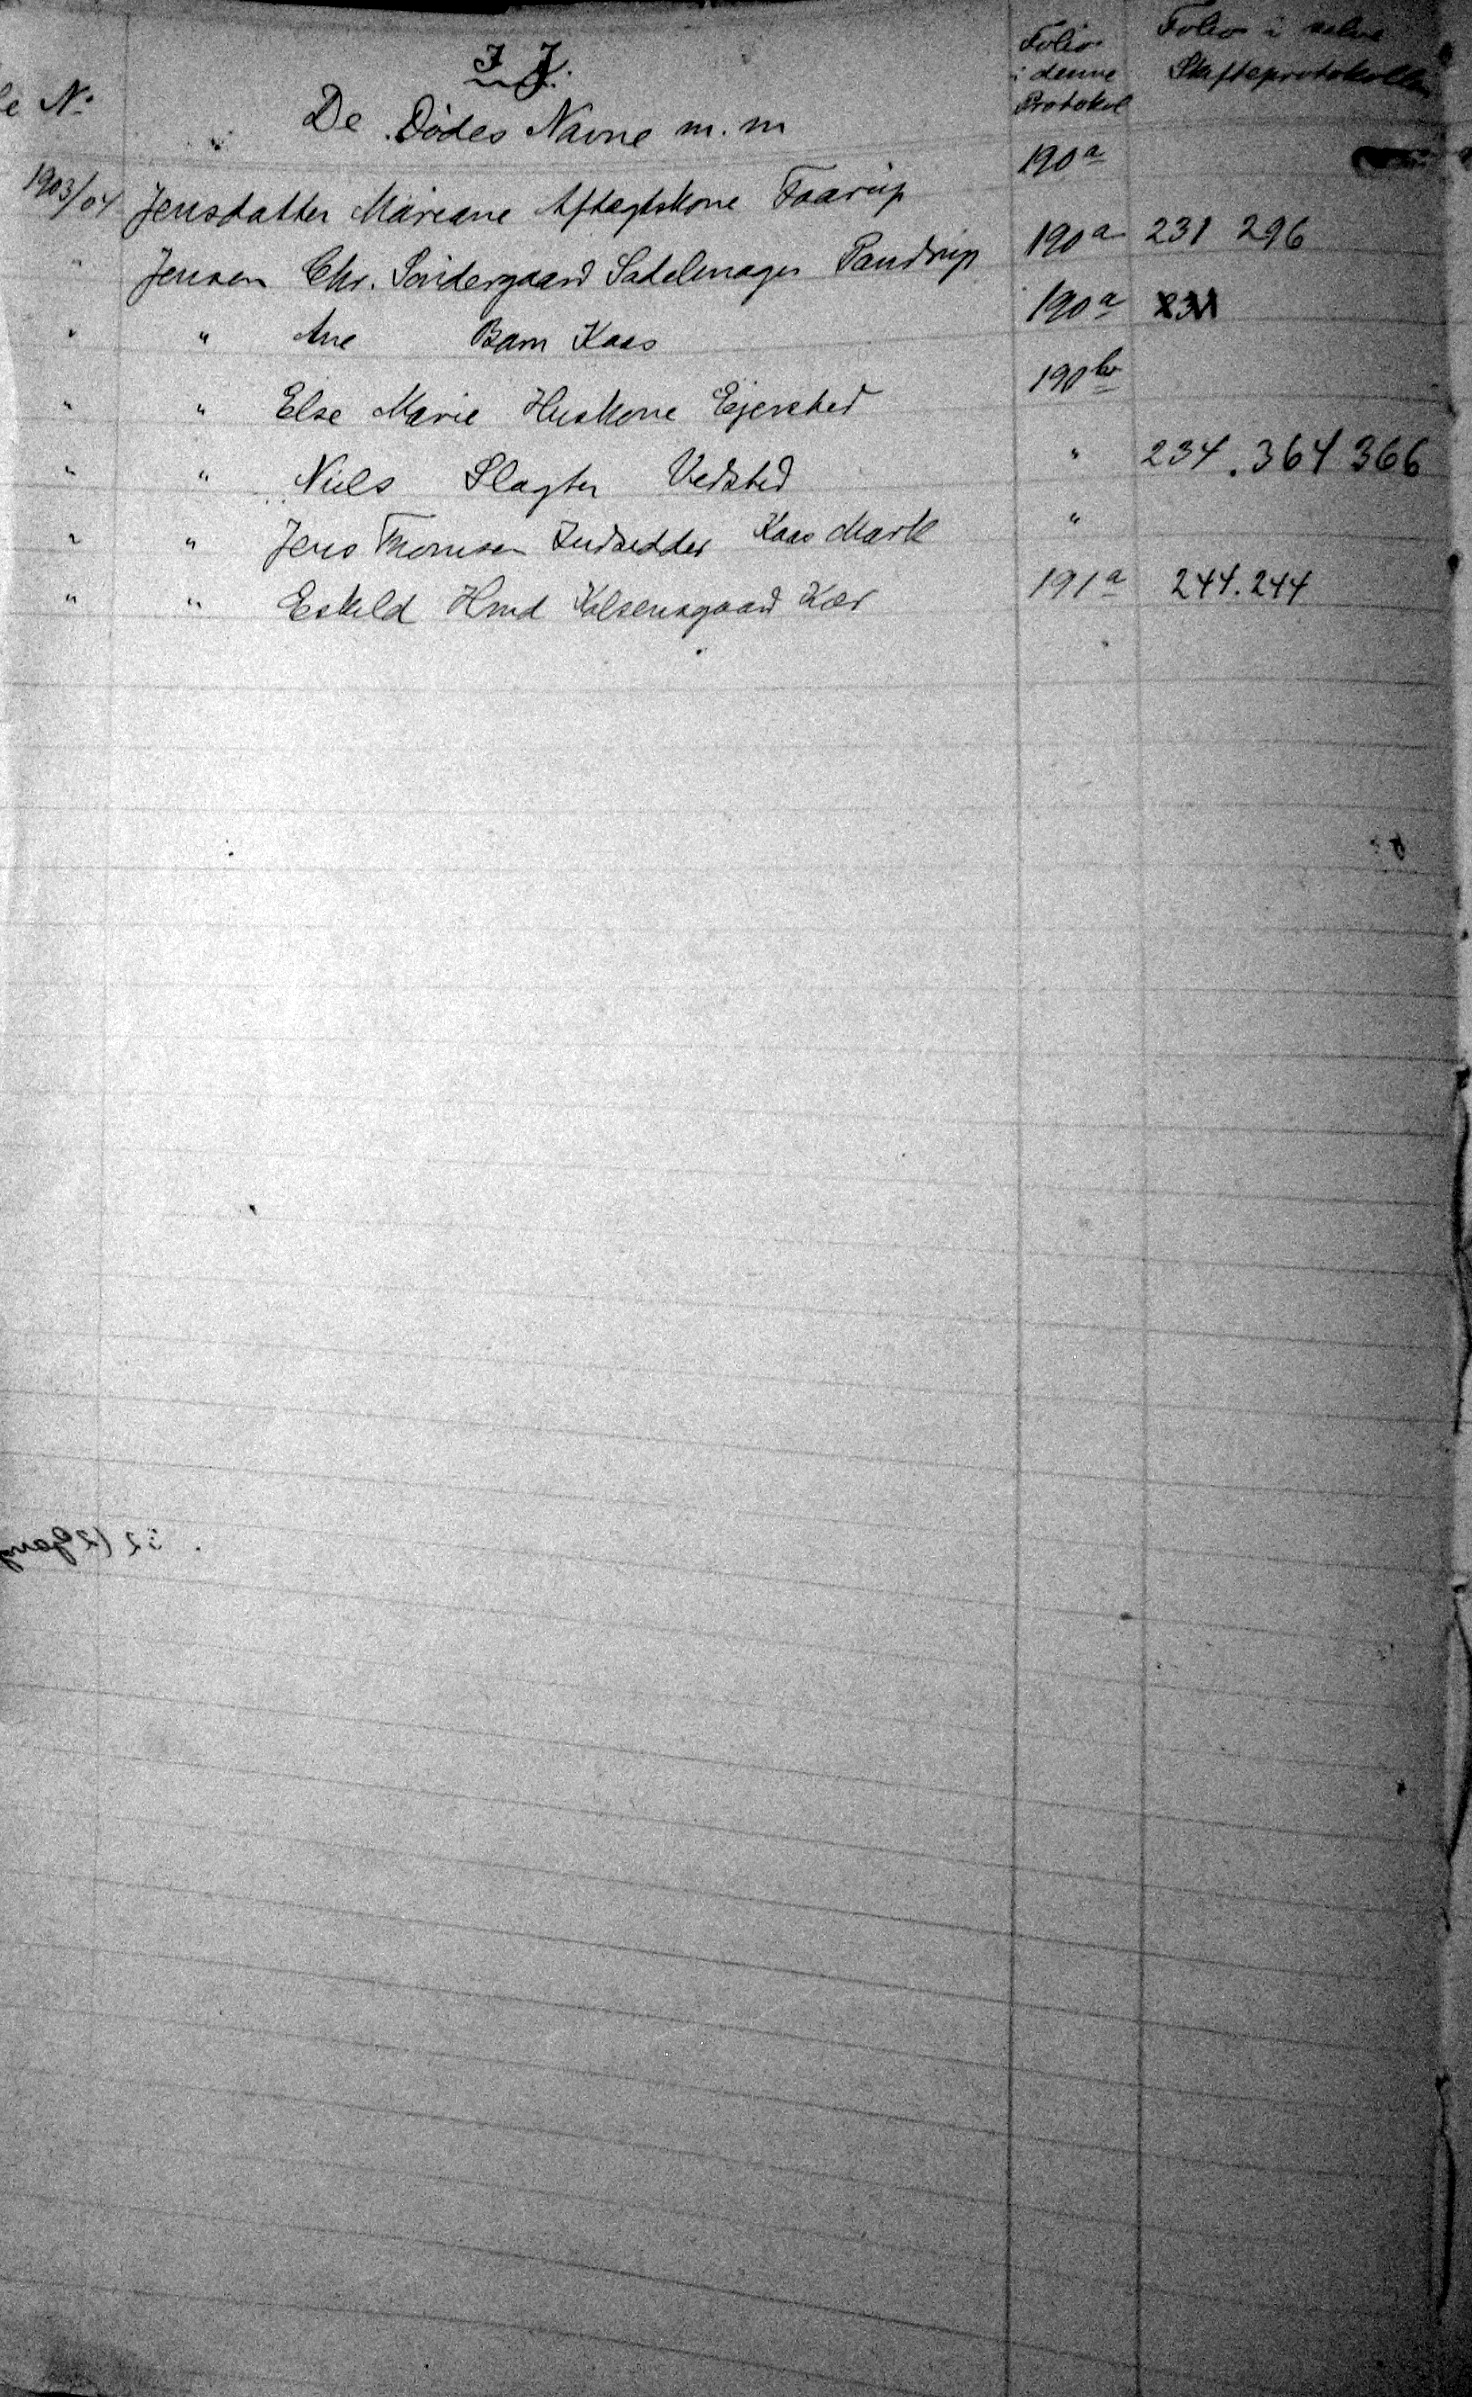 I J.
No De Dødes Navne m.m Folio i denne Protokol Folio i selve Skifteprotokollen
1903/04 Jensdatter Mariane Aftægtskone Faarup 190a
" Jensen Chr. Søndergaard Sadelmager Pandrup 190a 231 296
" " Ane Barn Kaas 190a 231
" " Else Marie Huskone Ejersted 190b
" " Niels Slagter Vedsted " 234.364 366
" " Jens Thomsen Indsidder Kaas Mark "
" " Eskild Hmd Kær 191a 244.244